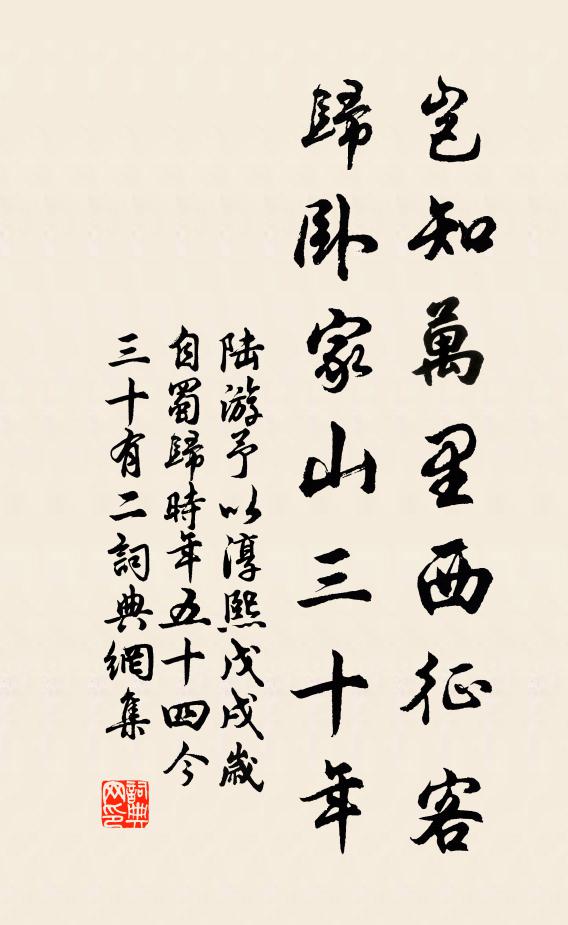 豈知萬里西征客
歸卧家山三十年
陆游予以淳熙戊戌歲
自蜀歸時年五十四今
三十有二詞典網集
詞典
网印